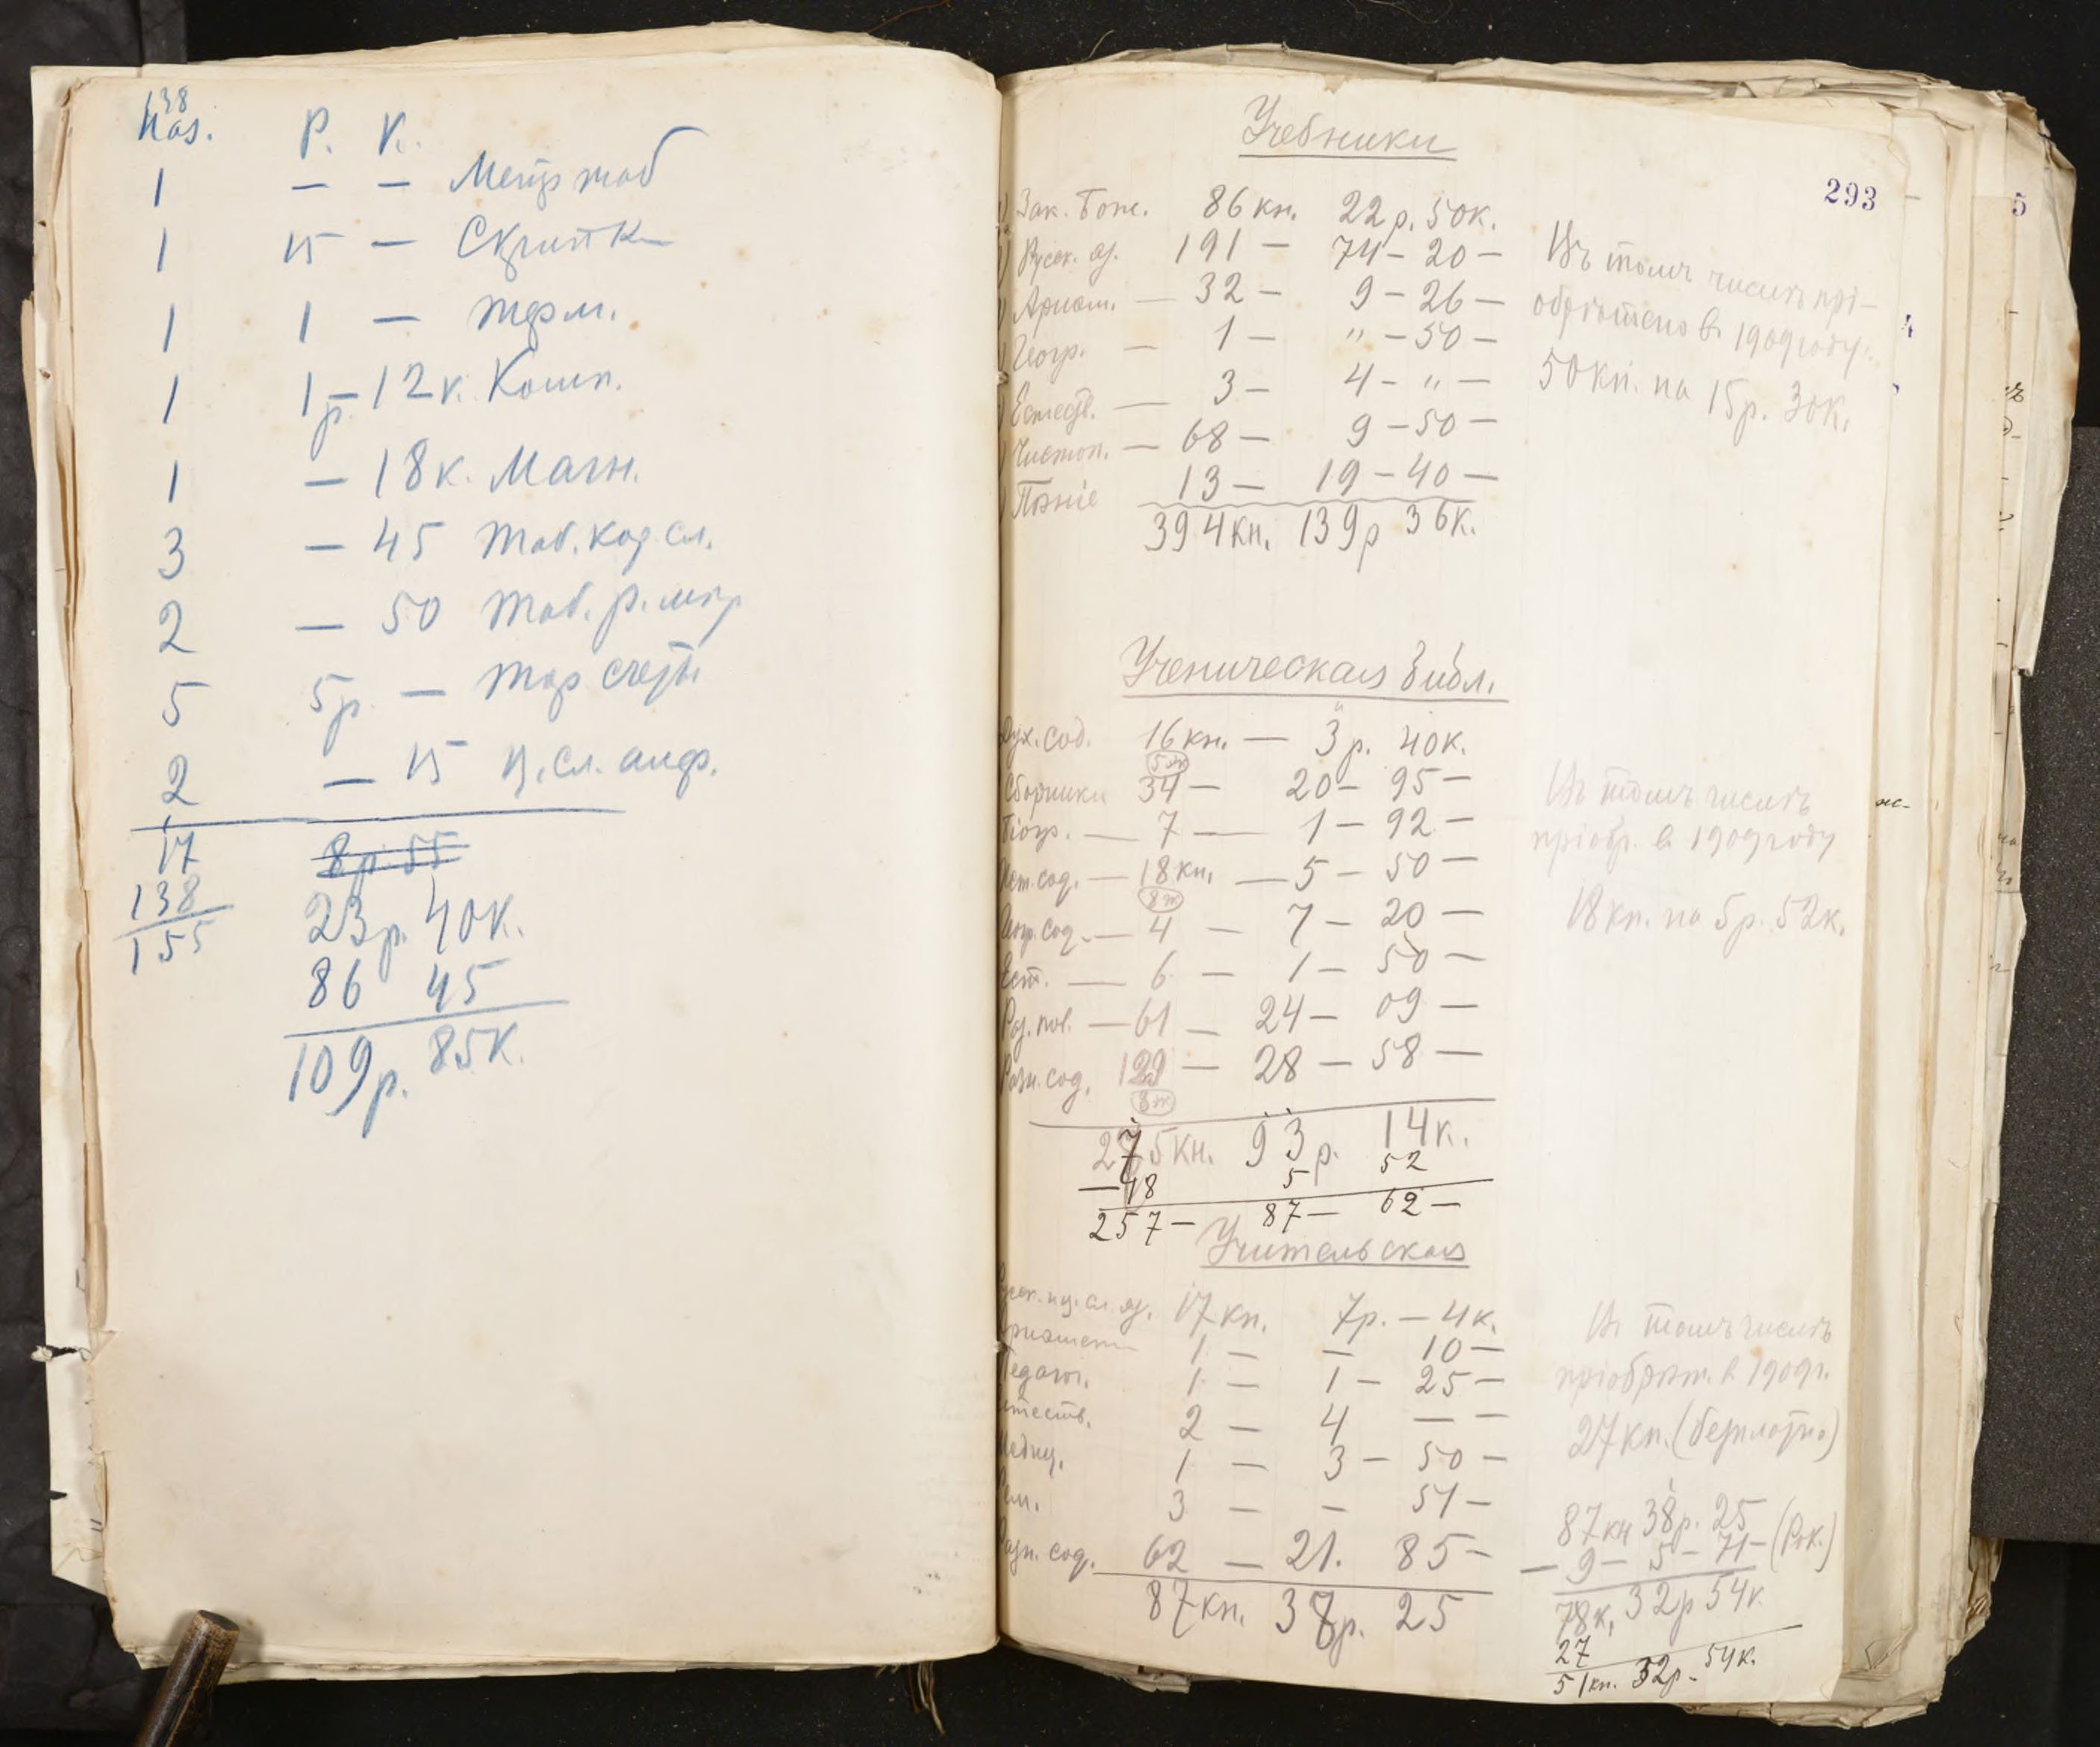 138
Наз. Р. К.
1 — — Метр таб
1 15 — Скрипк
1 1 — Терм.
1 1р. — 12к. Комп.
1 — 18к. Магн.
3 — 45 Таб. кор сл.
2 — 50 Таб. р.
5 5р. — Тор счеты
2 — 15 ц. сл. алф.
17 8 р. 55
138 23р. 40к.
155 86 45
109р. 85к.
Учебники
293
Зак. Бож. 86 кн. 22 р. 50к.
Русск. яз. 191 — 74 — 20 —
Ариѳм. — 32 — 9 — 26 —
Геогр. — 1 — " — 50 —
Естеств. — 3 — 4 — " —
Чистоп. — 68 — 9 — 50 —
Пѣніе 13 — 19 — 40 —
394 кн. 139р 36к.
Въ томъ числѣ прі-
обрѣтено в 1909 году
50 кн. на 15р. 30к.
Ученическая Библ.
Дух. сод. 16 кн. — 3 р. 40к.
Сборники 34 — 20 — 95 —
Біогр. — 7 — 1 — 92 —
Ист. сод. — 18 кн. — 5 — 50 —
Геогр. сод. — 4 — 7 — 20 —
Ест. — 6 — 1 — 50 —
Раз. пов. — 61 — 24 — 09 —
Разн. сод. 129 — 28 — 58 —
275 кн. 93 р. 14к.
— 18 5 52
257 — 87 — 62 —
Въ томъ числѣ
пріобр. в 1909 году
18 кн. на 5р. 52к.
Учительская
Русск. и ц. сл. яз. 17 кн. 7р. — 4к.
Ариѳмети 1 — — 10 —
Педагог. 1 — 1 — 25 —
Естеств. 2 — 4 — —
Медиц. 1 — 3 — 50 —
3 — — 51 —
Разн. сод. 62 — 21. 85 —
87 кн. 38р. 25
Въ томъ числѣ
пріобрѣт. в 1909г.
27 кн. (безплатно)
87 кн 38р. 25
— 9 — 5 — 71 —
78к. 32р 54к.
27
51 кн. 32р — 54к.